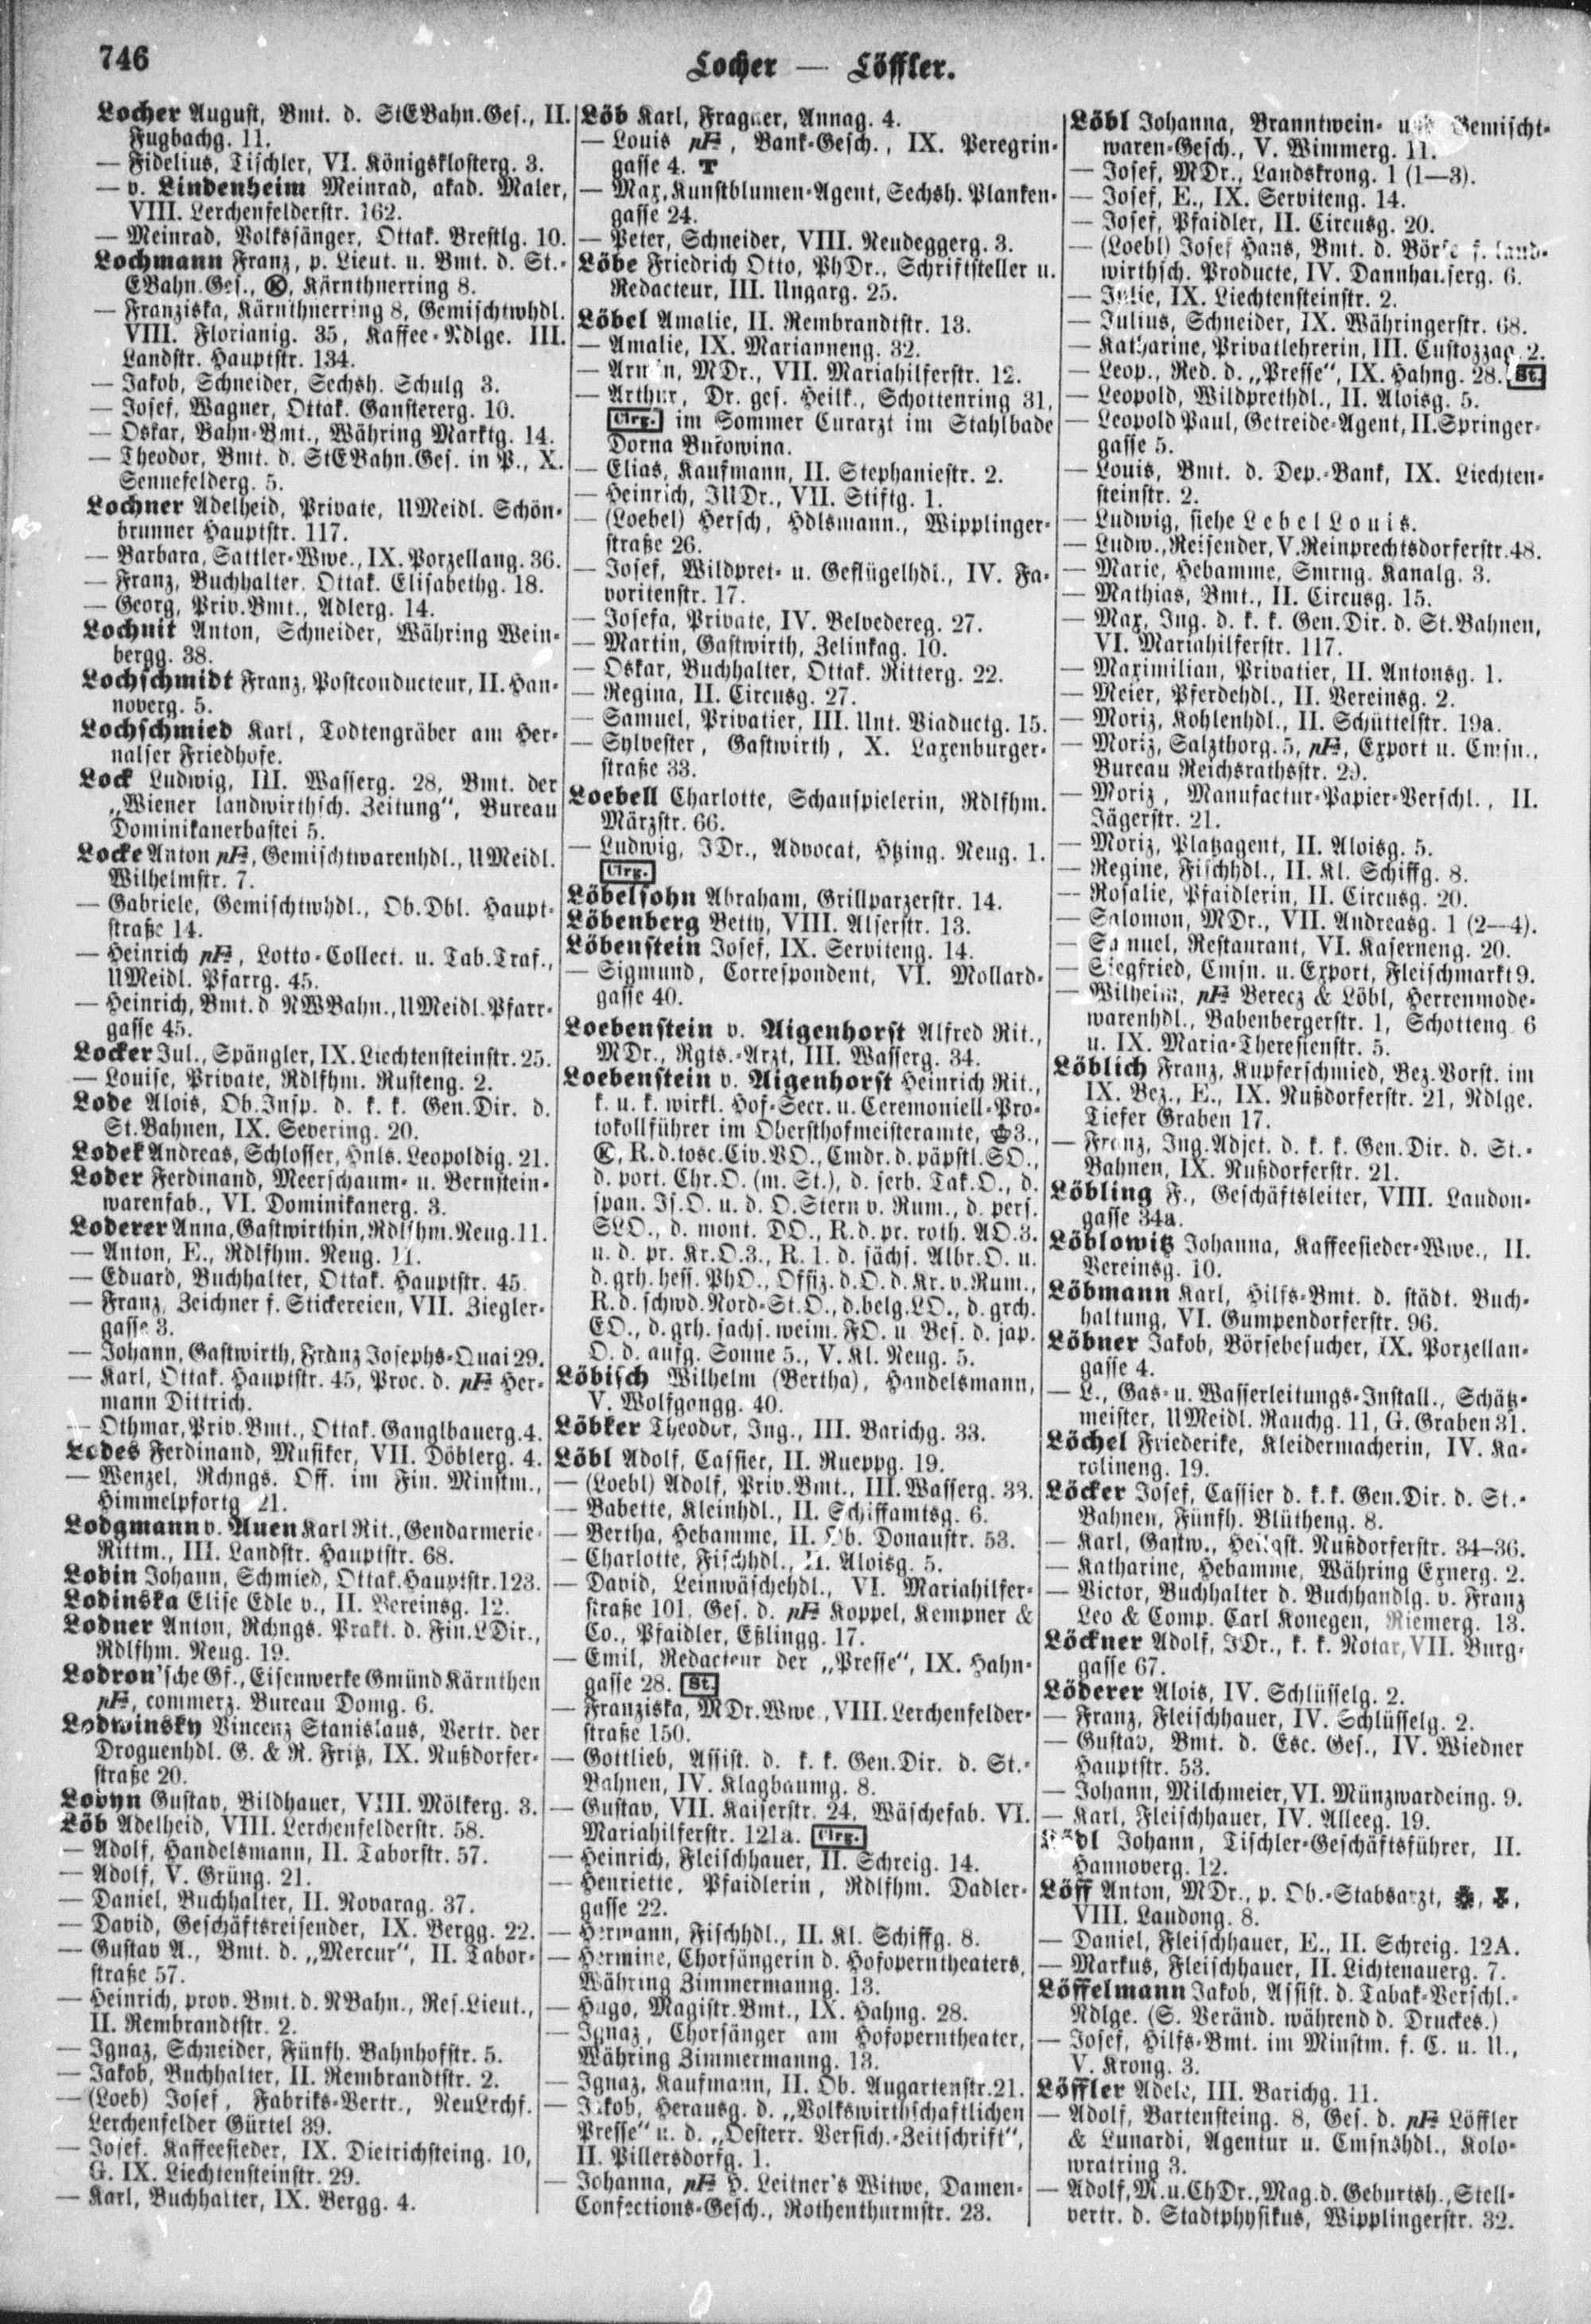 746
Locher — Löffler.
Locher August, Bmt. d. StEBahn.Ges., II.
Fugbachg. 11.
— Fidelius, Tischler, VI. Königsklosterg. 3.
— v. Lindenheim Meinrad, akad. Maler,
VIII. Lerchenfelderstr. 162.
— Meinrad, Volkssänger, Ottak. Brestlg. 10.
Lochmann Franz, p. Lieut. u. Bmt. d. St.-
EBahn.Ges., Ⓚ, Kärnthnerring 8.
— Franziska, Kärnthnerring 8, Gemischtwhdl.
VIII. Florianig. 35, Kaffee-Ndlge. III.
Landstr. Hauptstr. 134.
— Jakob, Schneider, Sechsh. Schulg 3.
— Josef, Wagner, Ottak. Ganstererg. 10.
— Oskar, Bahn-Bmt., Währing Marktg. 14.
— Theodor, Bmt. d. StEBahn.Ges. in P., X.
Sennefelderg. 5.
Lochner Adelheid, Private, UMeidl. Schön-
brunner Hauptstr. 117.
— Barbara, Sattler-Wwe., IX. Porzellang. 36.
— Franz, Buchhalter, Ottak. Elisabethg. 18.
— Georg, Priv.Bmt., Adlerg. 14.
Lochnit Anton, Schneider, Währing Wein-
bergg. 38.
Lochschmidt Franz, Postconducteur, II. Han-
noverg. 5.
Lochschmied Karl, Todtengräber am Her-
nalser Friedhofe.
Lock Ludwig, III. Wasserg. 28, Bmt. der
„Wiener landwirthsch. Zeitung“, Bureau
Dominikanerbastei 5.
Locke Anton pF, Gemischtwarenhdl., UMeidl.
Wilhelmstr. 7.
— Gabriele, Gemischtwhdl., Ob.Dbl. Haupt-
straße 14.
— Heinrich pF, Lotto-Collect. u. Tab.Traf.,
UMeidl. Pfarrg. 45.
— Heinrich, Bmt. d NWBahn., UMeidl. Pfarr-
gasse 45.
Locker Jul., Spängler, IX. Liechtensteinstr. 25.
— Louise, Private, Rdlfhm. Rusteng. 2.
Lode Alois, Ob.Insp. d. k. k. Gen.Dir. d.
St.Bahnen, IX. Severing. 20.
Lodek Andreas, Schlosser, Hnls. Leopoldig. 21.
Loder Ferdinand, Meerschaum- u. Bernstein-
warenfab., VI. Dominikanerg. 3.
Loderer Anna, Gastwirthin, Rdlfhm. Neug. 11.
— Anton, E., Rdlfhm. Neug. 11.
— Eduard, Buchhalter, Ottak. Hauptstr. 45
— Franz, Zeichner f. Stickereien, VII. Ziegler-
gasse 3.
— Johann, Gastwirth, Franz Josephs-Quai 29.
— Karl, Ottak. Hauptstr. 45, Proc. d. pF Her-
mann Dittrich.
— Othmar, Priv.Bmt., Ottak. Ganglbauerg. 4.
Lodes Ferdinand, Musiker, VII. Döblerg. 4.
— Wenzel, Rchngs. Off. im Fin. Minstm.,
Himmelpfortg 21.
Lodgmann v. Auen Karl Rit., Gendarmerie-
Rittm., III. Landstr. Hauptstr. 68.
Lodin Johann, Schmied, Ottak. Hauptstr. 123.
Lodinska Elise Edle v., II. Vereinsg. 12.
Lodner Anton, Rchngs. Prakt. d. Fin.LDir.,
Rdlfhm. Neug. 19.
Lodron'sche Gf., Eisenwerke Gmünd Kärnthen
pF, commerz. Bureau Domg. 6.
Lodwinsky Vincenz Stanislaus, Vertr. der
Droguenhdl. G. & R. Fritz, IX. Nußdorfer-
straße 20.
Lodyn Gustav, Bildhauer, VIII. Mölkerg. 3.
Löb Adelheid, VIII. Lerchenfelderstr. 58.
— Adolf, Handelsmann, II. Taborstr. 57.
— Adolf, V. Grüng. 21.
— Daniel, Buchhalter, II. Novarag. 37.
— David, Geschäftsreisender, IX. Bergg. 22.
— Gustav A., Bmt. d. „Mercur“, II. Tabor-
straße 57.
— Heinrich, prov. Bmt. d. NBahn., Res.Lieut.,
II. Rembrandtstr. 2.
— Ignaz, Schneider, Fünfh. Bahnhofstr. 5.
— Jakob, Buchhalter, II. Rembrandtstr. 2.
— (Loeb) Josef, Fabriks-Vertr., NeuLrchf.
Lerchenfelder Gürtel 39.
— Josef, Kaffeesieder, IX. Dietrichsteing. 10,
G. IX. Liechtensteinstr. 29.
— Karl, Buchhalter, IX. Bergg. 4.
Löb Karl, Fragner, Annag. 4.
— Louis pF, Bank-Gesch., IX. Peregrin-
gasse 4. T
— Max, Kunstblumen-Agent, Sechsh. Planken-
gasse 24.
— Peter, Schneider, VIII. Neudeggerg. 3.
Löbe Friedrich Otto, PhDr., Schriftsteller u.
Redacteur, III. Ungarg. 25.
Löbel Amalie, II. Rembrandtstr. 13.
— Amalie, IX. Marianneng. 32.
— Armin, MDr., VII. Mariahilferstr. 12.
— Arthur, Dr. ges. Heilk., Schottenring 31,
Clrg. im Sommer Curarzt im Stahlbade
Dorna Bukowina.
— Elias, Kaufmann, II. Stephaniestr. 2.
— Heinrich, JUDr., VII. Stiftg. 1.
— (Loebel) Hersch, Hdlsmann., Wipplinger-
straße 26.
— Josef, Wildpret- u. Geflügelhdl., IV. Fa-
voritenstr. 17.
— Josefa, Private, IV. Belvedereg. 27.
— Martin, Gastwirth, Zelinkag. 10.
— Oskar, Buchhalter, Ottak. Ritterg. 22.
— Regina, II. Circusg. 27.
— Samuel, Privatier, III. Unt. Viaductg. 15.
— Sylvester, Gastwirth, X. Laxenburger-
straße 33.
Loebell Charlotte, Schauspielerin, Rdlfhm.
Märzstr. 66.
— Ludwig, JDr., Advocat, Htzing. Neug. 1.
Clrg.
Löbelsohn Abraham, Grillparzerstr. 14.
Löbenberg Betty, VIII. Alserstr. 13.
Löbenstein Josef, IX. Serviteng. 14.
— Sigmund, Correspondent, VI. Mollard-
gasse 40.
Loebenstein v. Aigenhorst Alfred Rit.,
MDr., Rgts.-Arzt, III. Wasserg. 34.
Loebenstein v. Aigenhorst Heinrich Rit.,
k. u. k. wirkl. Hof-Secr. u. Ceremoniell-Pro-
tokollführer im Obersthofmeisteramte, 3.,
R. d. tosc. Civ.VO., Cmdr. d. päpstl. SO.,
d. port. Chr.O. (m. St.), d. serb. Tak.O., d.
span. Is.O. u. d. O.Stern v. Rum., d. pers.
SLO., d. mont. DO., R. d. pr. roth. AO.3.
u. d. pr. Kr.O.3., R. 1. d. sächs. Albr.O. u.
d. grh. hess. PhO., Offiz. d. O. d. Kr. v. Rum.,
R. d. schwd. Nord-St.O., d. belg. LO., d. grch.
EO., d. grh. sachs. weim. FO. u. Bes. d. jap.
O. d. aufg. Sonne 5., V. Kl. Neug. 5.
Löbisch Wilhelm (Bertha), Handelsmann,
V. Wolfgangg. 40.
Löbker Theodor, Ing., III. Barichg. 33.
Löbl Adolf, Cassier, II. Rueppg. 19.
— (Loebl) Adolf, Priv.Bmt., III. Wasserg. 33.
— Babette, Kleinhdl., II. Schiffamtsg. 6.
— Bertha, Hebamme, II. Ob. Donaustr. 53.
— Charlotte, Fischhdl., II. Aloisg. 5.
— David, Leinwäschehdl., VI. Mariahilfer-
straße 101, Ges. d. pF Koppel, Kempner &
Co., Pfaidler, Eßlingg. 17.
— Emil, Redacteur der „Presse“, IX. Hahn-
gasse 28. St.
— Franziska, MDr.Wwe, VIII. Lerchenfelder-
straße 150.
— Gottlieb, Assist. d. k. k. Gen.Dir. d. St.-
Bahnen, IV. Klagbaumg. 8.
— Gustav, VII. Kaiserstr. 24, Wäschefab. VI.
Mariahilferstr. 121a. Clrg.
— Heinrich, Fleischhauer, II. Schreig. 14.
— Henriette, Pfaidlerin, Rdlfhm. Dadler-
gasse 22.
— Hermann, Fischhdl., II. Kl. Schiffg. 8.
— Hermine, Chorsängerin d. Hofoperntheaters,
Währing Zimmermanng. 13.
— Hugo, Magistr.Bmt., IX. Hahng. 28.
— Ignaz, Chorsänger am Hofoperntheater,
Währing Zimmermanng. 13.
— Ignaz, Kaufmann, II. Ob. Augartenstr. 21.
— Jakob, Herausg. d. „Volkswirthschaftlichen
Presse“ u. d. „Oesterr. Versich.-Zeitschrift“,
II. Pillersdorfg. 1.
— Johanna, pF H. Leitner's Witwe, Damen-
Confections-Gesch., Rothenthurmstr. 23.
Löbl Johanna, Branntwein- und Gemischt-
waren-Gesch., V. Wimmerg. 11.
— Josef, MDr., Landskrong. 1 (1—3).
— Josef, E., IX. Serviteng. 14.
— Josef, Pfaidler, II. Circusg. 20.
— (Loebl) Josef Hans, Bmt. d. Börse f. land-
wirthsch. Producte, IV. Dannhauserg. 6.
— Julie, IX. Liechtensteinstr. 2.
— Julius, Schneider, IX. Währingerstr. 68.
— Katharine, Privatlehrerin, III. Custozzag. 2.
— Leop., Red. d. „Presse“, IX. Hahng. 28. St.
— Leopold, Wildprethdl., II. Aloisg. 5.
— Leopold Paul, Getreide-Agent, II. Springer-
gasse 5.
— Louis, Bmt. d. Dep.-Bank, IX. Liechten-
steinstr. 2.
— Ludwig, siehe Lebel Louis.
— Ludw., Reisender, V. Reinprechtsdorferstr. 48.
— Marie, Hebamme, Smrng. Kanalg. 3.
— Mathias, Bmt., II. Circusg. 15.
— Max, Ing. d. k. k. Gen.Dir. d. St.Bahnen,
VI. Mariahilferstr. 117.
— Maximilian, Privatier, II. Antonsg. 1.
— Meier, Pferdehdl., II. Vereinsg. 2.
— Moriz, Kohlenhdl., II. Schüttelstr. 19a.
— Moriz, Salzthorg. 5, pF, Export u. Cmsn.,
Bureau Reichsrathsstr. 29.
— Moriz, Manufactur-Papier-Verschl., II.
Jägerstr. 21.
— Moriz, Platzagent, II. Aloisg. 5.
— Regine, Fischhdl., II. Kl. Schiffg. 8.
— Rosalie, Pfaidlerin, II. Circusg. 20.
— Salomon, MDr., VII. Andreasg. 1 (2—4).
— Samuel, Restaurant, VI. Kaserneng. 20.
— Siegfried, Cmsn. u. Export, Fleischmarkt 9.
— Wilhelm, pF Berecz & Löbl, Herrenmode-
warenhdl., Babenbergerstr. 1, Schotteng 6
u. IX. Maria-Theresienstr. 5.
Löblich Franz, Kupferschmied, Bez.Vorst. im
IX. Bez., E., IX. Nußdorferstr. 21, Ndlge.
Tiefer Graben 17.
— Franz, Ing.Adjct. d. k. k. Gen.Dir. d. St.-
Bahnen, IX. Nußdorferstr. 21.
Löbling F., Geschäftsleiter, VIII. Laudon-
gasse 34a.
Löblowitz Johanna, Kaffeesieder-Wwe., II.
Vereinsg. 10.
Löbmann Karl, Hilfs-Bmt. d. städt. Buch-
haltung, VI. Gumpendorferstr. 96.
Löbner Jakob, Börsebesucher, IX. Porzellan-
gasse 4.
— L., Gas- u. Wasserleitungs-Install., Schätz-
meister, UMeidl. Rauchg. 11, G. Graben 31.
Löchel Friederike, Kleidermacherin, IV. Ka-
rolineng. 19.
Löcker Josef, Cassier d. k. k. Gen.Dir. d. St.-
Bahnen, Fünfh. Blütheng. 8.
— Karl, Gastw., Heiligst. Nußdorferstr. 34–36.
— Katharine, Hebamme, Währing Exnerg. 2.
— Victor, Buchhalter d. Buchhandlg. v. Franz
Leo & Comp. Carl Konegen, Riemerg. 13.
Löckner Adolf, JDr., k. k. Notar, VII. Burg-
gasse 67.
Löderer Alois, IV. Schlüsselg. 2.
— Franz, Fleischhauer, IV. Schlüsselg. 2.
— Gustav, Bmt. d. Esc. Ges., IV. Wiedner
Hauptstr. 53.
— Johann, Milchmeier, VI. Münzwardeing. 9.
— Karl, Fleischhauer, IV. Alleeg. 19.
Lödl Johann, Tischler-Geschäftsführer, II.
Hannoverg. 12.
Löff Anton, MDr., p. Ob.-Stabsarzt,
VIII. Laudong. 8.
— Daniel, Fleischhauer, E., II. Schreig. 12A.
— Markus, Fleischhauer, II. Lichtenauerg. 7.
Löffelmann Jakob, Assist. d. Tabak-Verschl.-
Ndlge. (S. Veränd. während d. Druckes.)
— Josef, Hilfs-Bmt. im Minstm. f. C. u. U.,
V. Krong. 3.
Löffler Adele, III. Barichg. 11.
— Adolf, Bartensteing. 8, Ges. d. pF Löffler
& Lunardi, Agentur u. Cmsnshdl., Kolo-
wratring 3.
— Adolf, M. u. ChDr., Mag. d. Geburtsh., Stell-
vertr. d. Stadtphysikus, Wipplingerstr. 32.